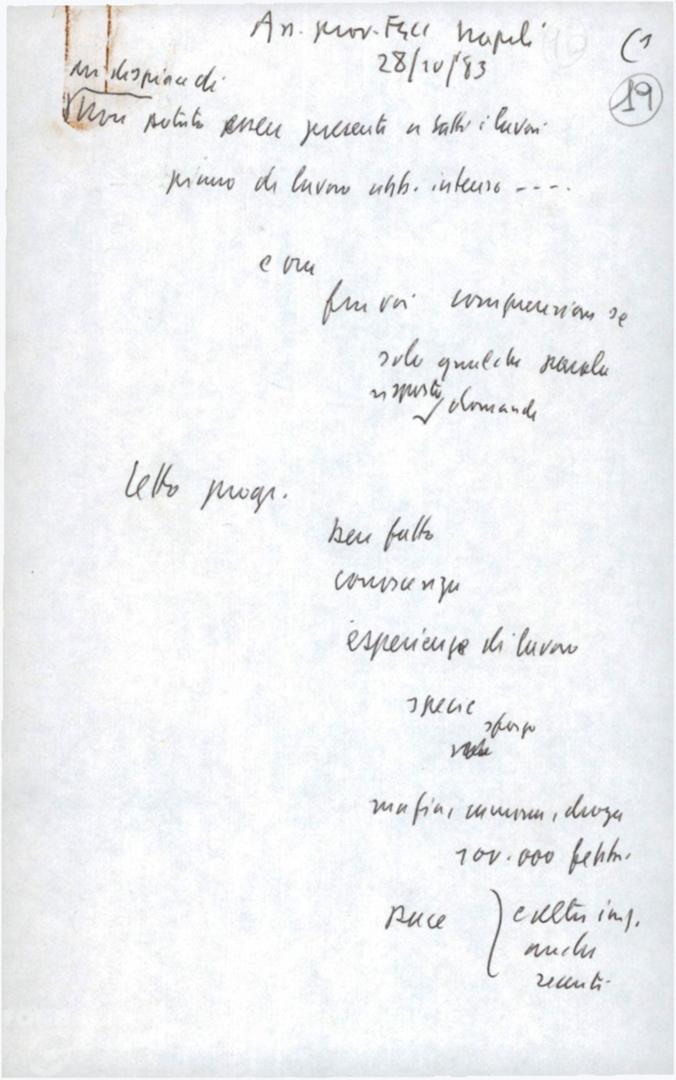 Ass. prov. FGCI Napoli
28/10/83
(1
19
mi dispiace di
Non potuto essere presente a tutti i lavori
piano di lavoro abb. intenso ----.
e ora
fra voi comprensione se
solo qualche parola
risposta domande
Letto progr.
ben fatto
conoscenza
esperienze di lavoro
specie
sforzo
mafia, camorra, droga
100.000 febbr.
Pace
e altre imp.
anche
recenti